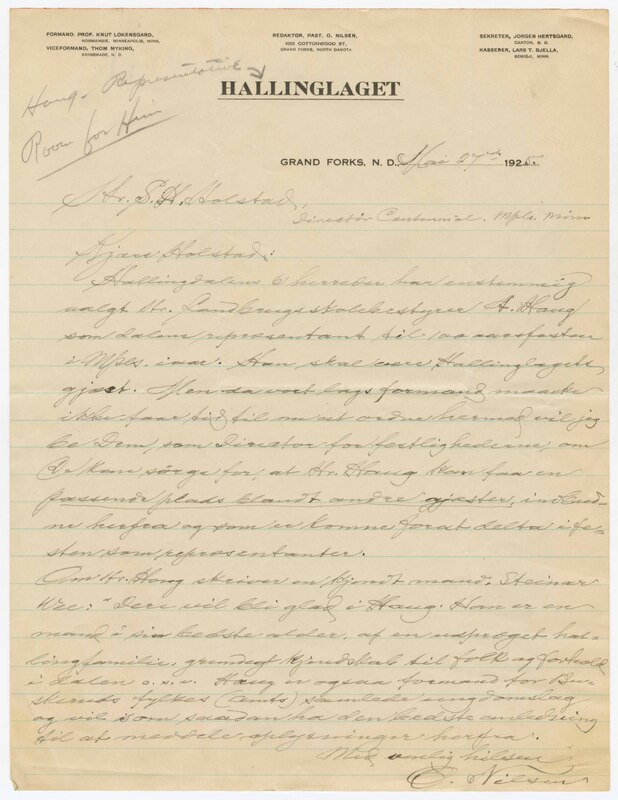 FORMAND, PROF. KNUT LOKENSGARD,
NORMANDIE, MINNEAPOLIS, MINN.
VICEFORMAND, THOM MYKING,
GRINSMADE, N. D.
REDAKTOR, PAST. O. NILSEN,
1001 COTTONWOOD ST.
GRAND FORKS, NORTH DAKOTA
SEKRETER, JORGEN HEFTSGARD,
CANTON, S. D.
KASSERER, LARS T. BJELLA,
BEMIDJI, MINN.
Haug - Representative
Room for Him
HALLINGLAGET
GRAND FORKS, N. D., Mai 27 1925.
Hr. S. H. Holstad,
Director Centennial. Mpls. Minn
Kjære Holstad:
Hallingdalens 6 herreder har enstemmig
valgt Hr. Landbrugsskolebestyrer A. Haug
som dalens representant til 100 aarsfesten
i Mpls. iaar. Han skal være Hallinglagets
gjæst. Men da vort lags formand maaske
ikke faar tid til at ordne hermed vil jeg
be Dem, som Director for festlighederne, om
De kan sörge for, at Hr. Haug kan faa en
passende plads blandt andre gjæster, indbud-
ne herfra og som er komne for at delta i fe-
sten som representanter.
Om Hr. Haug skriver en kjendt mand, Steinar
Wee: "Dere vil bli glad i Haug. Han er en
mand i sin bedste alder, af en udpræget hal-
lingfamilie, grundigt kjendskab til folk og forhold
i dalen o.s.v. Haug er ogsaa formand for Bu-
skeruds fylkes (amts) samlede ungdomslag
og vil som saadan ha den bedste anledning
til at meddele oplysninger herfra.
Med venlig hilsen
O. Nilsen